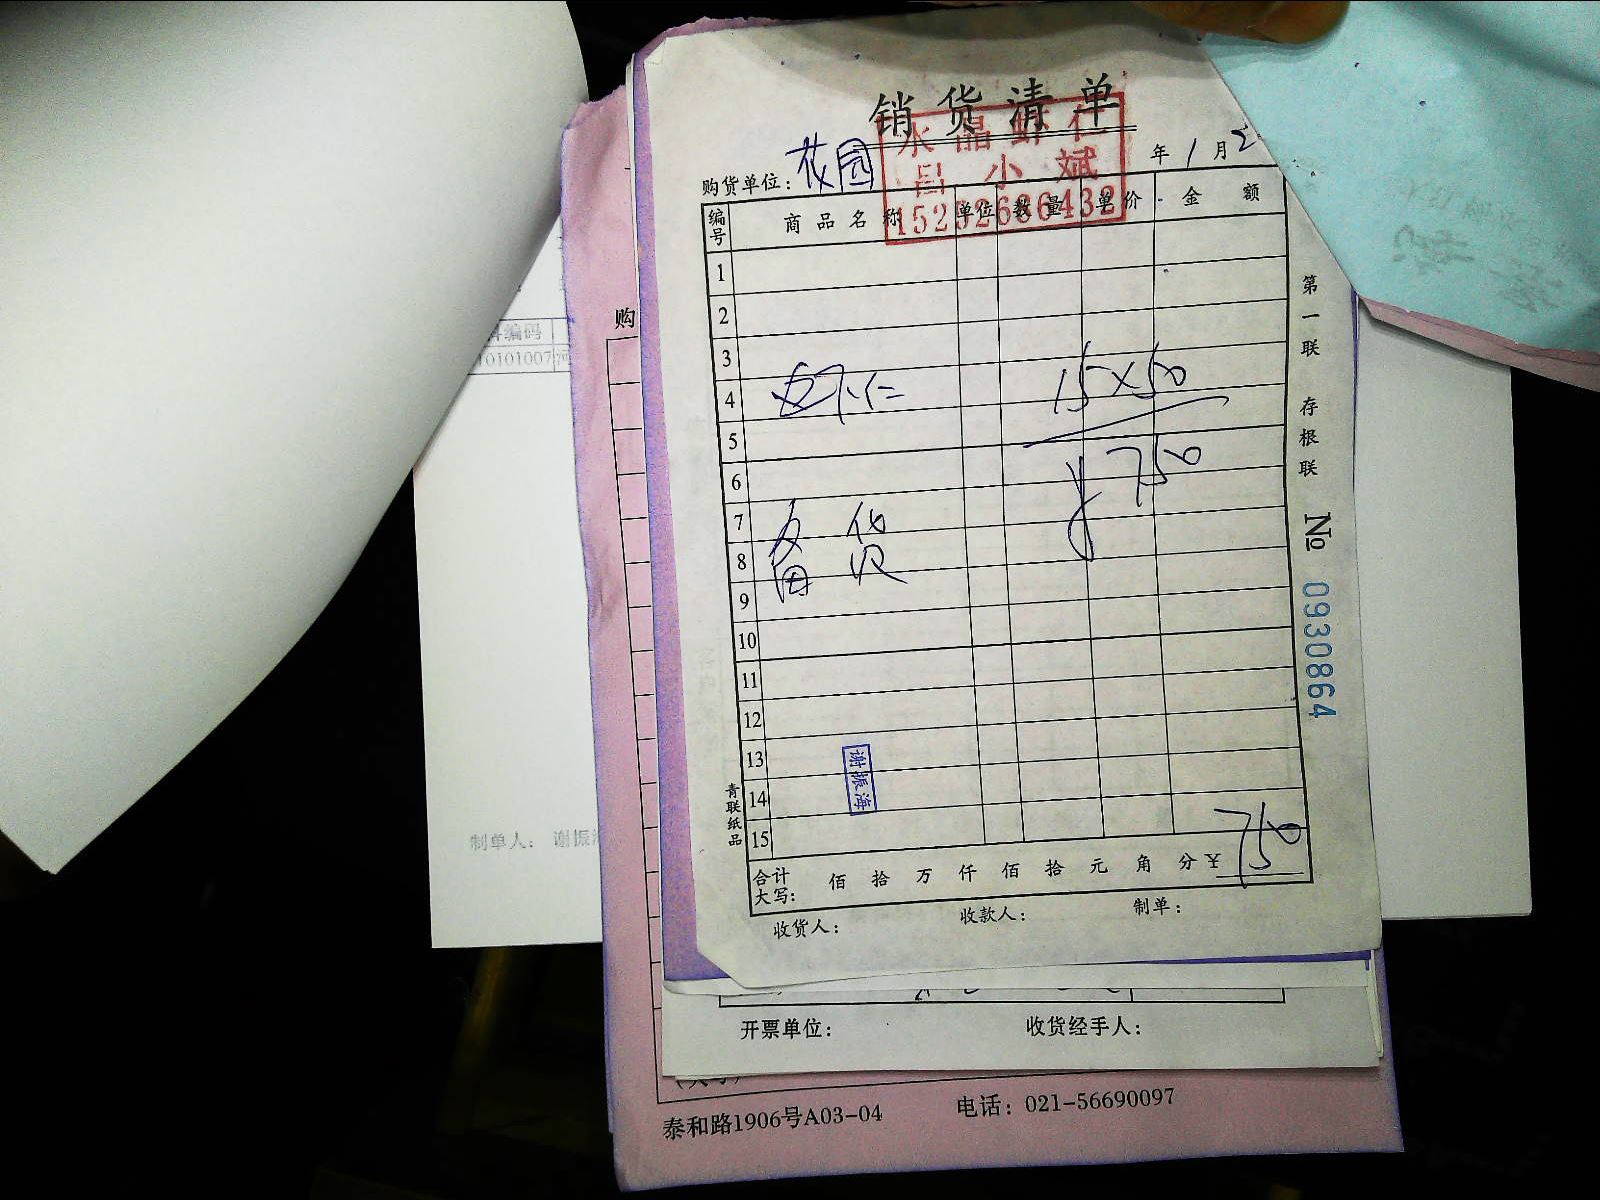 销货清单
水晶虾仁
吕小斌
15252686432
购货单位: 花园
年1月2
编号 商品名称 单位 数量 单价 金额
1
2
3
4 虾仁 15×50
5
6 ¥750
7
8 备货
9
10
11
12
13
14
15
谢振海
合计大写: 佰拾万仟佰拾元角分 ¥750
收货人: 收款人: 制单:
第一联 存根联
№ 0930864
青联纸品
购
料编码
10101007 河
制单人: 谢振海
开票单位: 收货经手人:
泰和路1906号A03-04 电话: 021-56690097